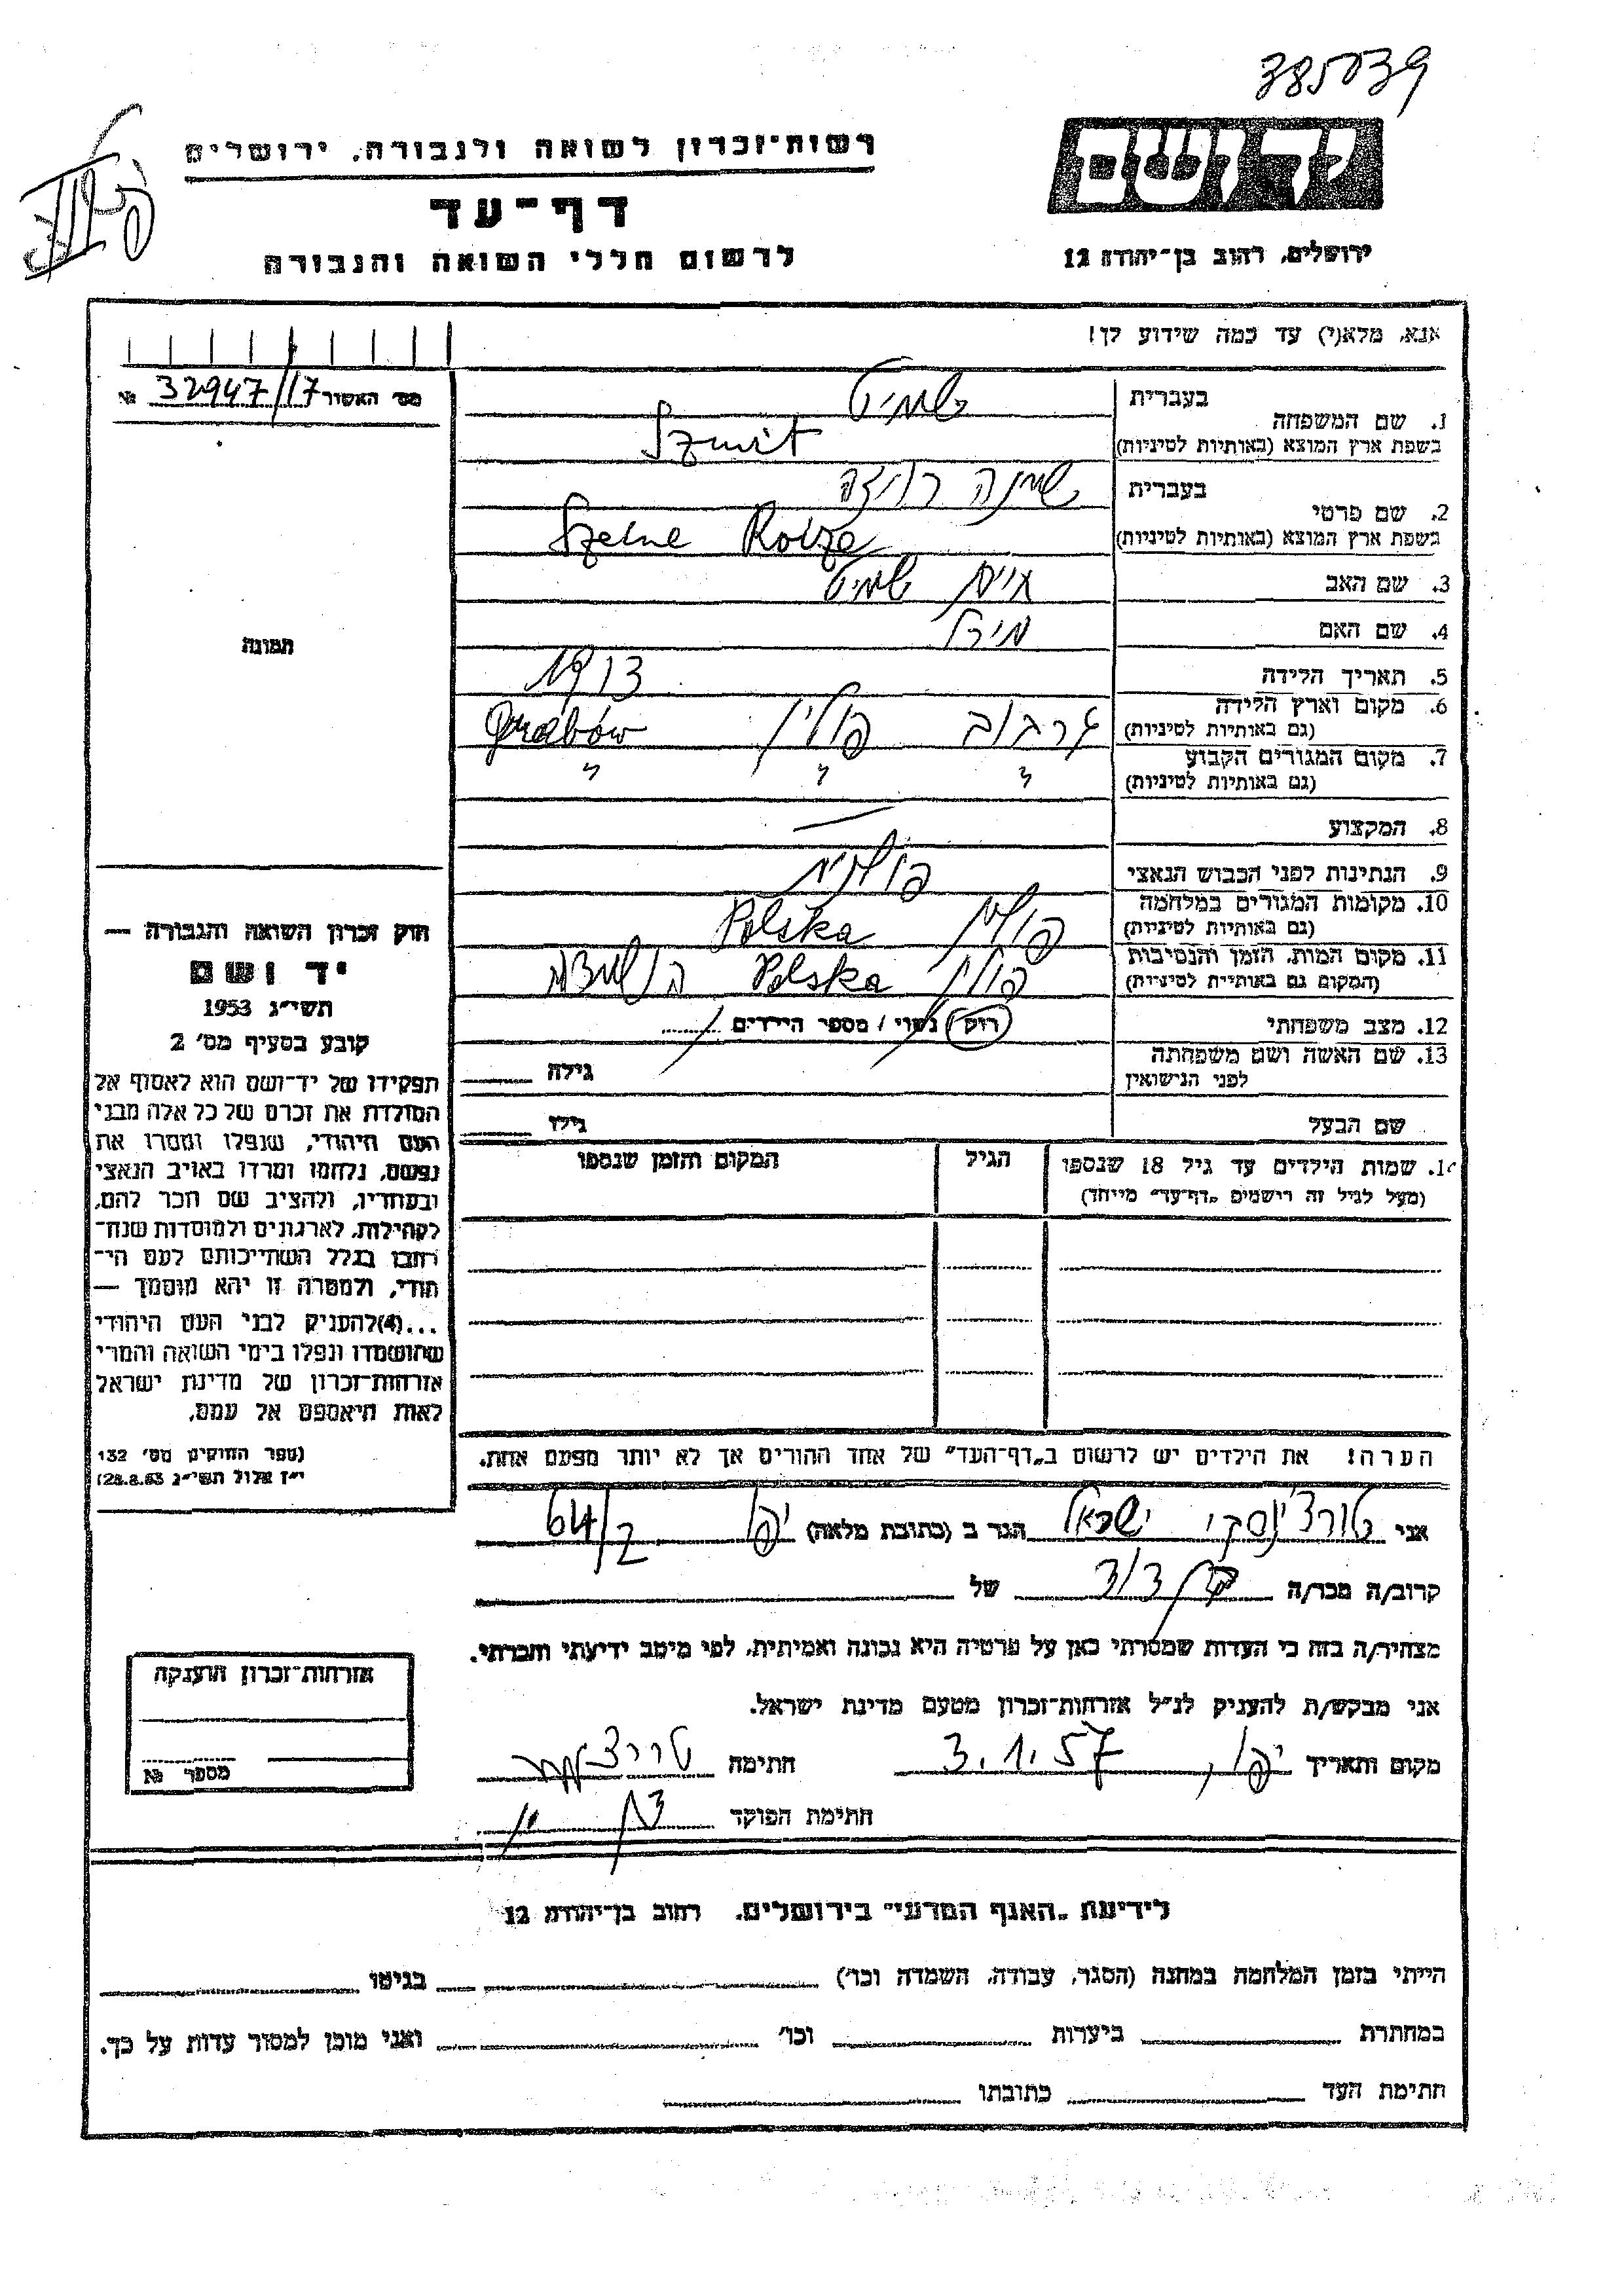 385039
רשות־זכרון לשואה ולגבורה, ירושלים
דף־עד
לרשום חללי השואה והגבורה
יד ושם
ירושלים, רחוב בן־יהודה 12
אנא, מלא(י) עד כמה שידוע לך!
מס' האשור 32947/17 №
בעברית שמיט
1. שם המשפחה
בשפת ארץ המוצא (באותיות לטיניות) Szmit
בעברית שיינה רויזה
2. שם פרטי
בשפת ארץ המוצא (באותיות לטיניות) Szeine Roize
3. שם האב שמיט
4. שם האם מירל
5. תאריך הלידה 1913
6. מקום וארץ הלידה גרבוב פולין Grabów
(גם באותיות לטיניות)
7. מקום המגורים הקבוע " " "
(גם באותיות לטיניות)
8. המקצוע —
9. הנתינות לפני הכבוש הנאצי פולנית
10. מקומות המגורים במלחמה פולין Polska
(גם באותיות לטיניות)
11. מקום המות, הזמן והנסיבות פולין Polska השמדה
(המקום גם באותיית לטיניות)
12. מצב משפחתי רווק / נשוי / מספר הילדים
13. שם האשה ושם משפחתה גילה
לפני הנישואין
שם הבעל גילו
תמונה
חוק זכרון השואה והגבורה —
יד ושם
תשי״ג 1953
קובע בסעיף מס' 2
תפקידו של יד־ושם הוא לאסוף אל
המולדת את זכרם של כל אלה מבני
העם היהודי, שנפלו ומסרו את
נפשם, נלחמו ומרדו באויב הנאצי
ובעוזריו, ולהציב שם וזכר להם,
לקהילות, לארגונים ולמוסדות שנח־
רבו בגלל השתייכותם לעם הי־
הודי, ולמטרה זו יהא מוסמך —
...(4)להעניק לבני העם היהודי
שהושמדו ונפלו בימי השואה והמרי
אזרחות־זכרון של מדינת ישראל
לאות היאספם אל עמם.
(ספר החוקים מס' 132
י״ז אלול תשי״ג 28.8.53)
14. שמות הילדים עד גיל 18 שנספו הגיל המקום והזמן שנספו
(מעל לגיל זה רישמים „דף־עד״ מייחד)
הערה! את הילדים יש לרשום ב„דף־העד״ של אחד ההורים אך לא יותר מפעם אחת.
אני טורצ'ינסקי ישראל הגר ב (כתובת מלאה) יפו 64/
קרוב/ה מכר/ה בן דוד של
מצהיר/ה בזה כי העדות שמסרתי כאן על פרטיה היא נכונה ואמיתית, לפי מיטב ידיעתי והכרתי.
אני מבקש/ת להעניק לנ״ל אזרחות־זכרון מטעם מדינת ישראל.
מקום ותאריך יפו, 3.1.57 חתימה
חתימת הפוקד
אזרחות־זכרון הוענקה
מספר №
לידיעת „האגף המדעי״ בירושלים, רחוב בן־יהודה 12
הייתי בזמן המלחמה במחנה (הסגר, עבודה, השמדה וכו') בגיטו
במחתרת ביערות וכו' ואני מוכן למסור עדות על כך.
חתימת העד כתובתו